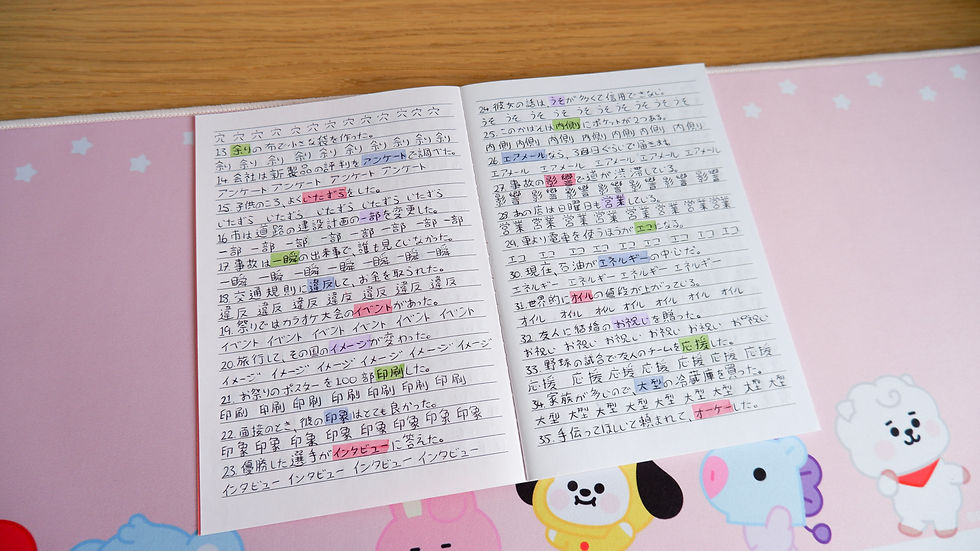 穴 穴 穴 穴 穴 穴 穴 穴 穴 穴 穴
13 余りの布で小さな袋を作った。
余り 余り 余り 余り 余り 余り 余り 余り 余り
14 会社は新製品の評判をアンケートで調さた。
アンケート アンケート アンケート アンケート
15. 子供のころ、よくいたずらをした。
いたずら いたずら いたずら いたずら いたずら
16 市は道路の建設計画の一部を変更した。
一部 一部 一部 一部 一部 一部 一部 一部
17 事故は一瞬の出来事で、誰も見ていなかった。
一瞬 一瞬 一瞬 一瞬 一瞬 一瞬
18 交通規則に違反して、お金を取られた。
違反 違反 違反 違反 違反 違反 違反
19. 祭りではカラオケ大会のイベントがあった。
イベント イベント イベント イベント イベント イベント
20. 旅行して、その国のイメージが変わった。
イメージ イメージ イメージ イメージ イメージ イメージ
21 お祭りのポスターを100部印刷した。
印刷 印刷 印刷 印刷 印刷 印刷 印刷
22. 面接のとき、彼の印象はとても良かった。
印象 印象 印象 印象 印象 印象 印象 印象
23. 優勝した選手がインタビューに答えた。
インタビュー インタビュー インタビュー インタビュー
24. 彼女の話は、うそが多くて信用できない。
うそ うそ うそ うそ うそ うそ うそ うそ うそ
25. このかばんは内側にポケットが2つある。
内側 内側 内側 内側 内側 内側 内側 内側
26. エアメールなら、3日ぐらいで届きます。
エアメール エアメール エアメール エアメール エアメール
27. 事故の影響で道が渋滞している。
影響 影響 影響 影響 影響 影響 影響 影響
28. あの店は日曜日も営業している。
営業 営業 営業 営業 営業 営業 営業 営業
29. 車より電車を使うほうがエコになる。
エコ エコ エコ エコ エコ エコ エコ エコ
30. 現在、石油がエネルギーの中心だ。
エネルギー エネルギー エネルギー エネルギー
31. 世界的にオイルの値段が上がっている。
オイル オイル オイル オイル オイル オイル オイル
32. 友人に結婚のお祝いを贈った。
お祝い お祝い お祝い お祝い お祝い お祝い
33. 野球の試合で友人のチームを応援した。
応援 応援 応援 応援 応援 応援 応援
34. 家族が多いので、大型の冷蔵庫を買った。
大型 大型 大型 大型 大型 大型 大型 大型 大型
35. 手伝ってほしいと頼まれて、オーケーした。